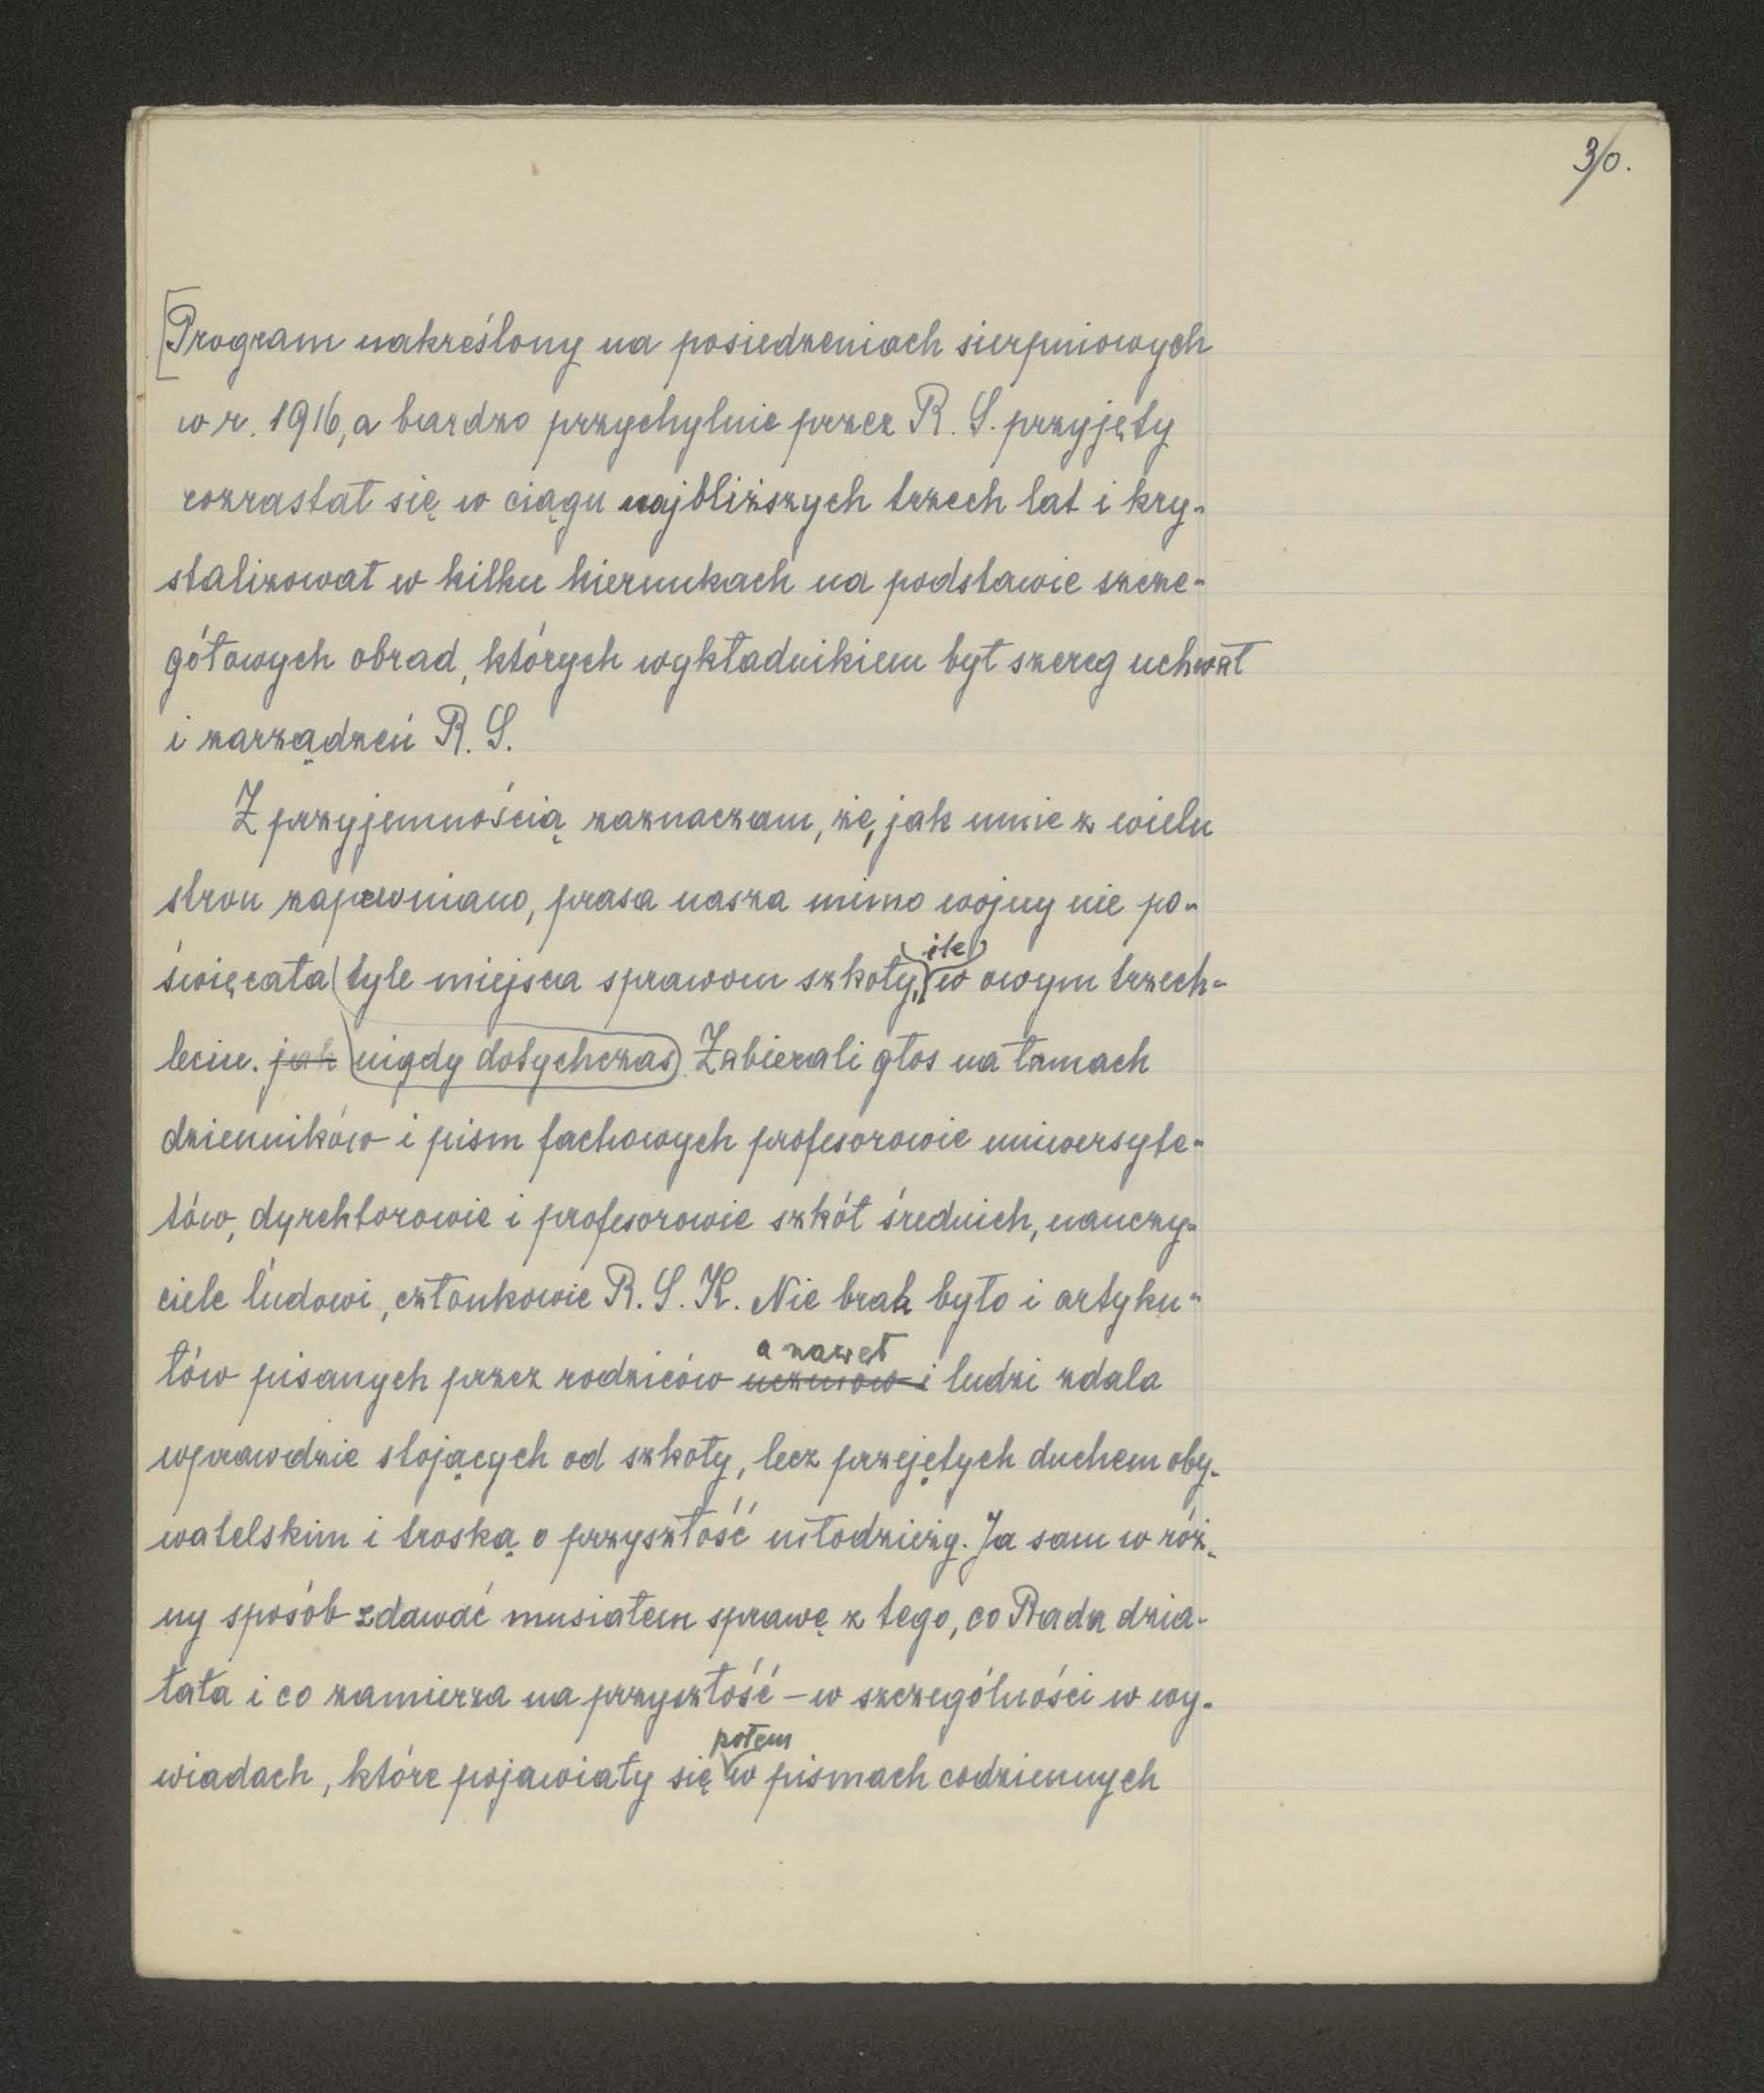 30.
[Program nakreślony na posiedzeniach sierpniowych
w r. 1916, a bardzo przychylnie przez R. S. przyjęty
rozrastał się w ciągu najbliższych trzech lat i kry-
stalizował w kilku kierunkach na podstawie szcze-
gółowych obrad, których wykładnikiem był szereg uchwał
i zarządzeń R. S.
Z przyjemnością zaznaczam, że, jak mnie z wielu
stron zapewniano, prasa nasza mimo wojny nie po-
ile
święcała tyle miejsca sprawom szkoły, w owym trzech-
leciu. jak nigdy dotychczas. Zabierali głos na łamach
dzienników i pism fachowych profesorowie uniwersyte-
tów, dyrektorowie i profesorowie szkół średnich, nauczy-
ciele ludowi, członkowie R. S. K. Nie brak było i artyku-
a nawet
łów pisanych przez rodziców uczniów i ludzi zdala
wprawdzie stojących od szkoły, lecz przejętych duchem oby-
watelskim i troską o przyszłość młodzieży. Ja sam w róż-
ny sposób zdawać musiałem sprawę z tego, co Rada dzia-
łała i co zamierza na przyszłość – w szczególności w wy-
potem
wiadach, które pojawiały się w pismach codziennych